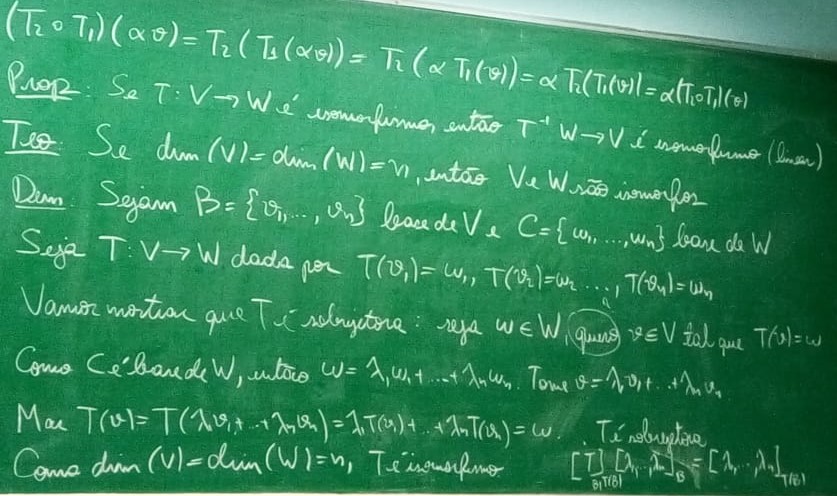 (T₂∘T₁)(αv) = T₂(T₁(αv)) = T₂(αT₁(v)) = αT₂(T₁(v)) = α(T₂∘T₁)(v)
Prop: Se T: V → W é isomorfismo, então T⁻¹ W → V é isomorfismo (linear)
Teo: Se dim (V) = dim (W) = n, então V e W são isomorfos
Dem: Sejam B = {v₁, ..., vₙ} base de V e C = {w₁, ..., wₙ} base de W
Seja T: V → W dada por T(v₁) = w₁, T(v₂) = w₂ ..., T(vₙ) = wₙ
Vamos mostrar que T é sobrejetora: seja w ∈ W, quero v ∈ V tal que T(v) = w
Como C é base de W, então w = λ₁w₁ + ... + λₙwₙ. Tome v = λ₁v₁ + ... + λₙvₙ.
Mas T(v) = T(λ₁v₁ + ... + λₙvₙ) = λ₁T(v₁) + ... + λₙT(vₙ) = w. T é sobrejetora
Como dim (V) = dim (W) = n, T é isomorfismo [T]_{B,T(B)} [λ₁, ..., λₙ]_B = [λ₁, ..., λₙ]_{T(B)}